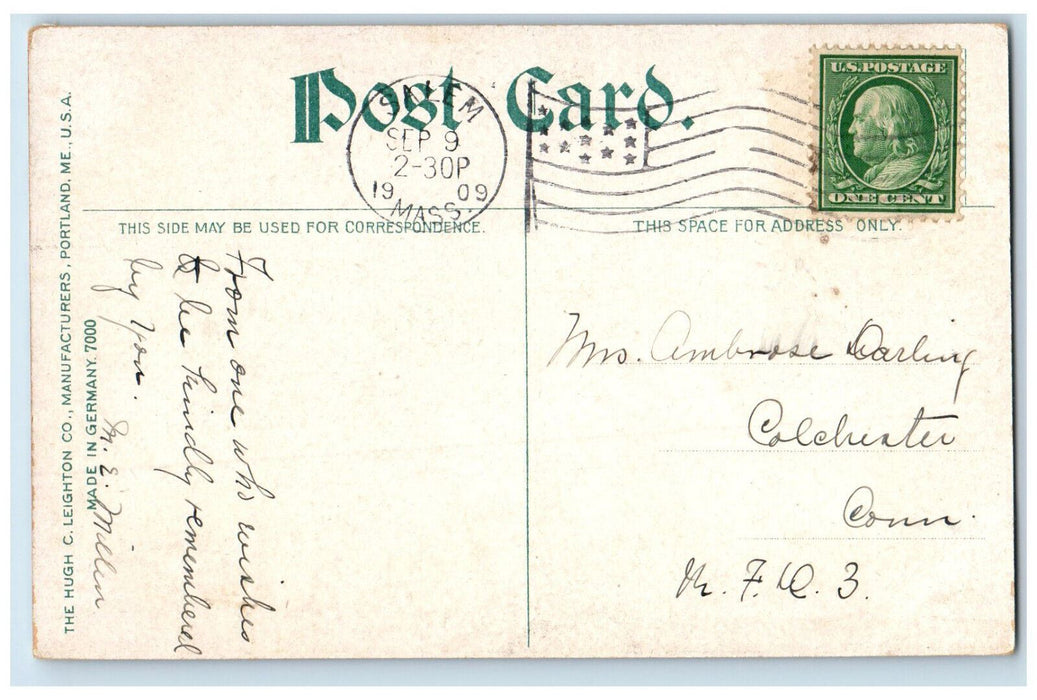 Post Card.
SALEM
SEP 9
2-30P
19 09
MASS.
U.S. POSTAGE
ONE CENT
THIS SIDE MAY BE USED FOR CORRESPONDENCE.
THIS SPACE FOR ADDRESS ONLY.
THE HUGH C. LEIGHTON CO., MANUFACTURERS, PORTLAND, ME., U.S.A.
MADE IN GERMANY. 7000
From one who wishes
to be kindly remembered
by you.
M. E. Millen
Mrs. Ambrose Darling
Colchester
Conn.
R. F. D. 3.